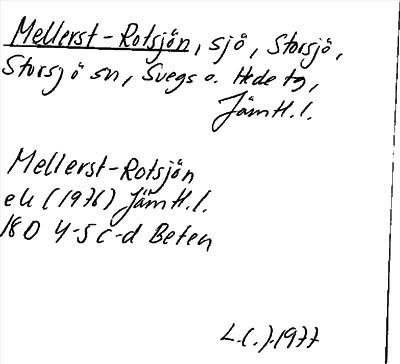 Mellerst-Rotsjön, sjö, Storsjö,
Storsjö sn, Svegs o. Hede tg,
Jämtl.l.
Mellerst-Rotsjön
ek (1976) Jämtl.l.
18D 4-5 c-d Beten
L.(.).1977